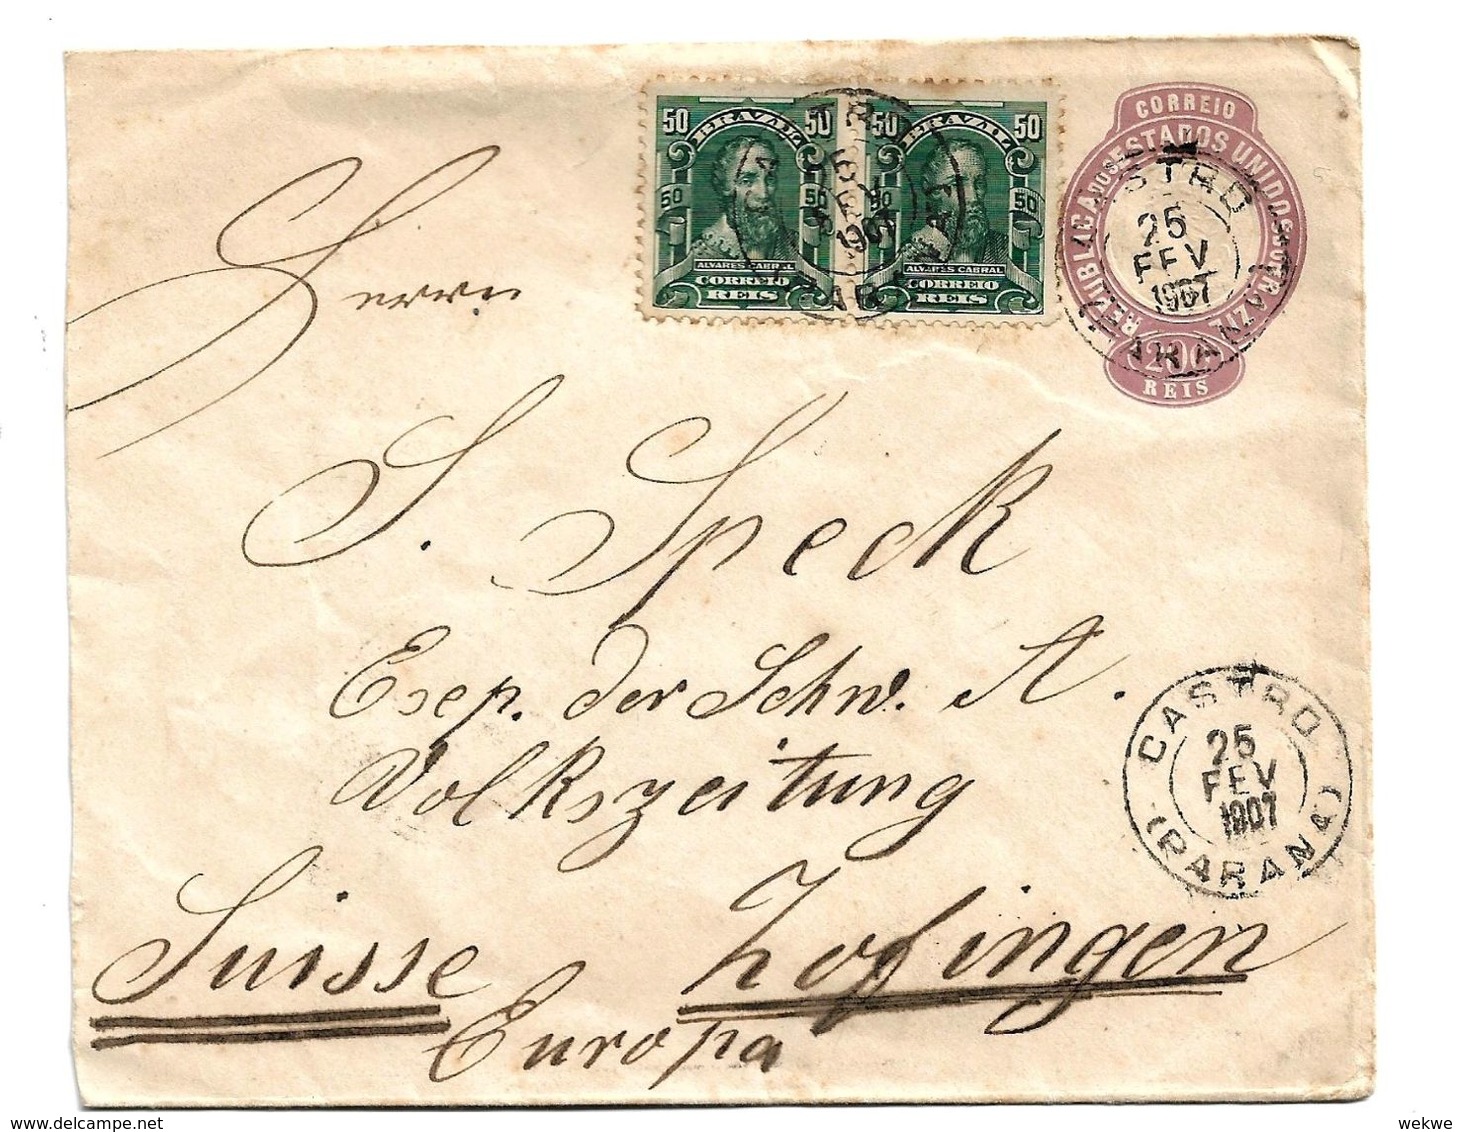 CORREIO
REPUBLICA DOS ESTADOS UNIDOS DO BRAZIL
200
REIS
50 BRAZIL 50
50 50
ALVARES CABRAL
CORREIO
REIS
50 BRAZIL 50
50 50
ALVARES CABRAL
CORREIO
REIS
CASTRO
25
FEV
1907
(PARANA)
Herrn
S. Speck
Exp. der Schw. A.
Volkszeitung
Zofingen
Suisse
Europa
CASTRO
25
FEV
1907
(PARANA)
delcampe.net
wekwe